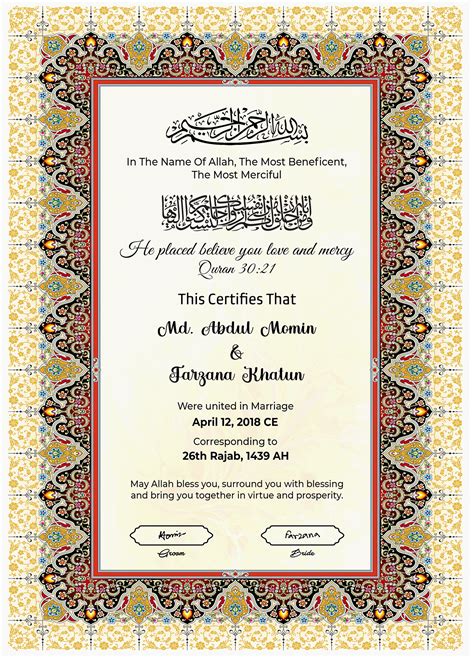 بسم الله الرحمن الرحيم
In The Name Of Allah, The Most Beneficent,
The Most Merciful
He placed believe you love and mercy
Quran 30:21
This Certifies That
Md. Abdul Momin
&
Farzana Khatun
Were united in Marriage
April 12, 2018 CE
Corresponding to
26th Rajab, 1439 AH
May Allah bless you, surround you with blessing
and bring you together in virtue and prosperity.
Momin Farzana
Groom Bride